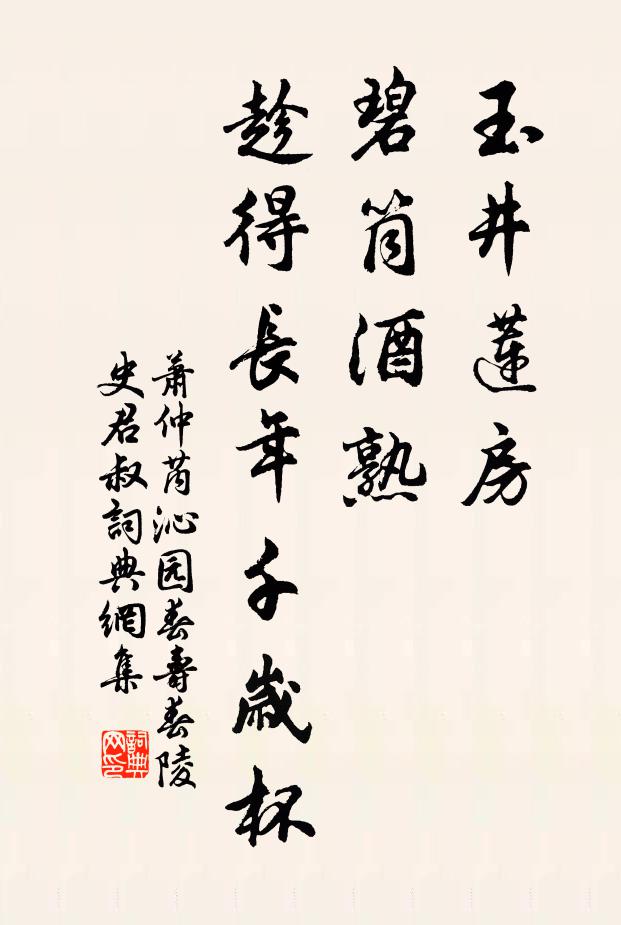 玉井蓮房
碧筒酒熟
趁得長年千歲杯
蕭仲芮沁园春壽春陵
史君叔詞典網集
詞典
网印